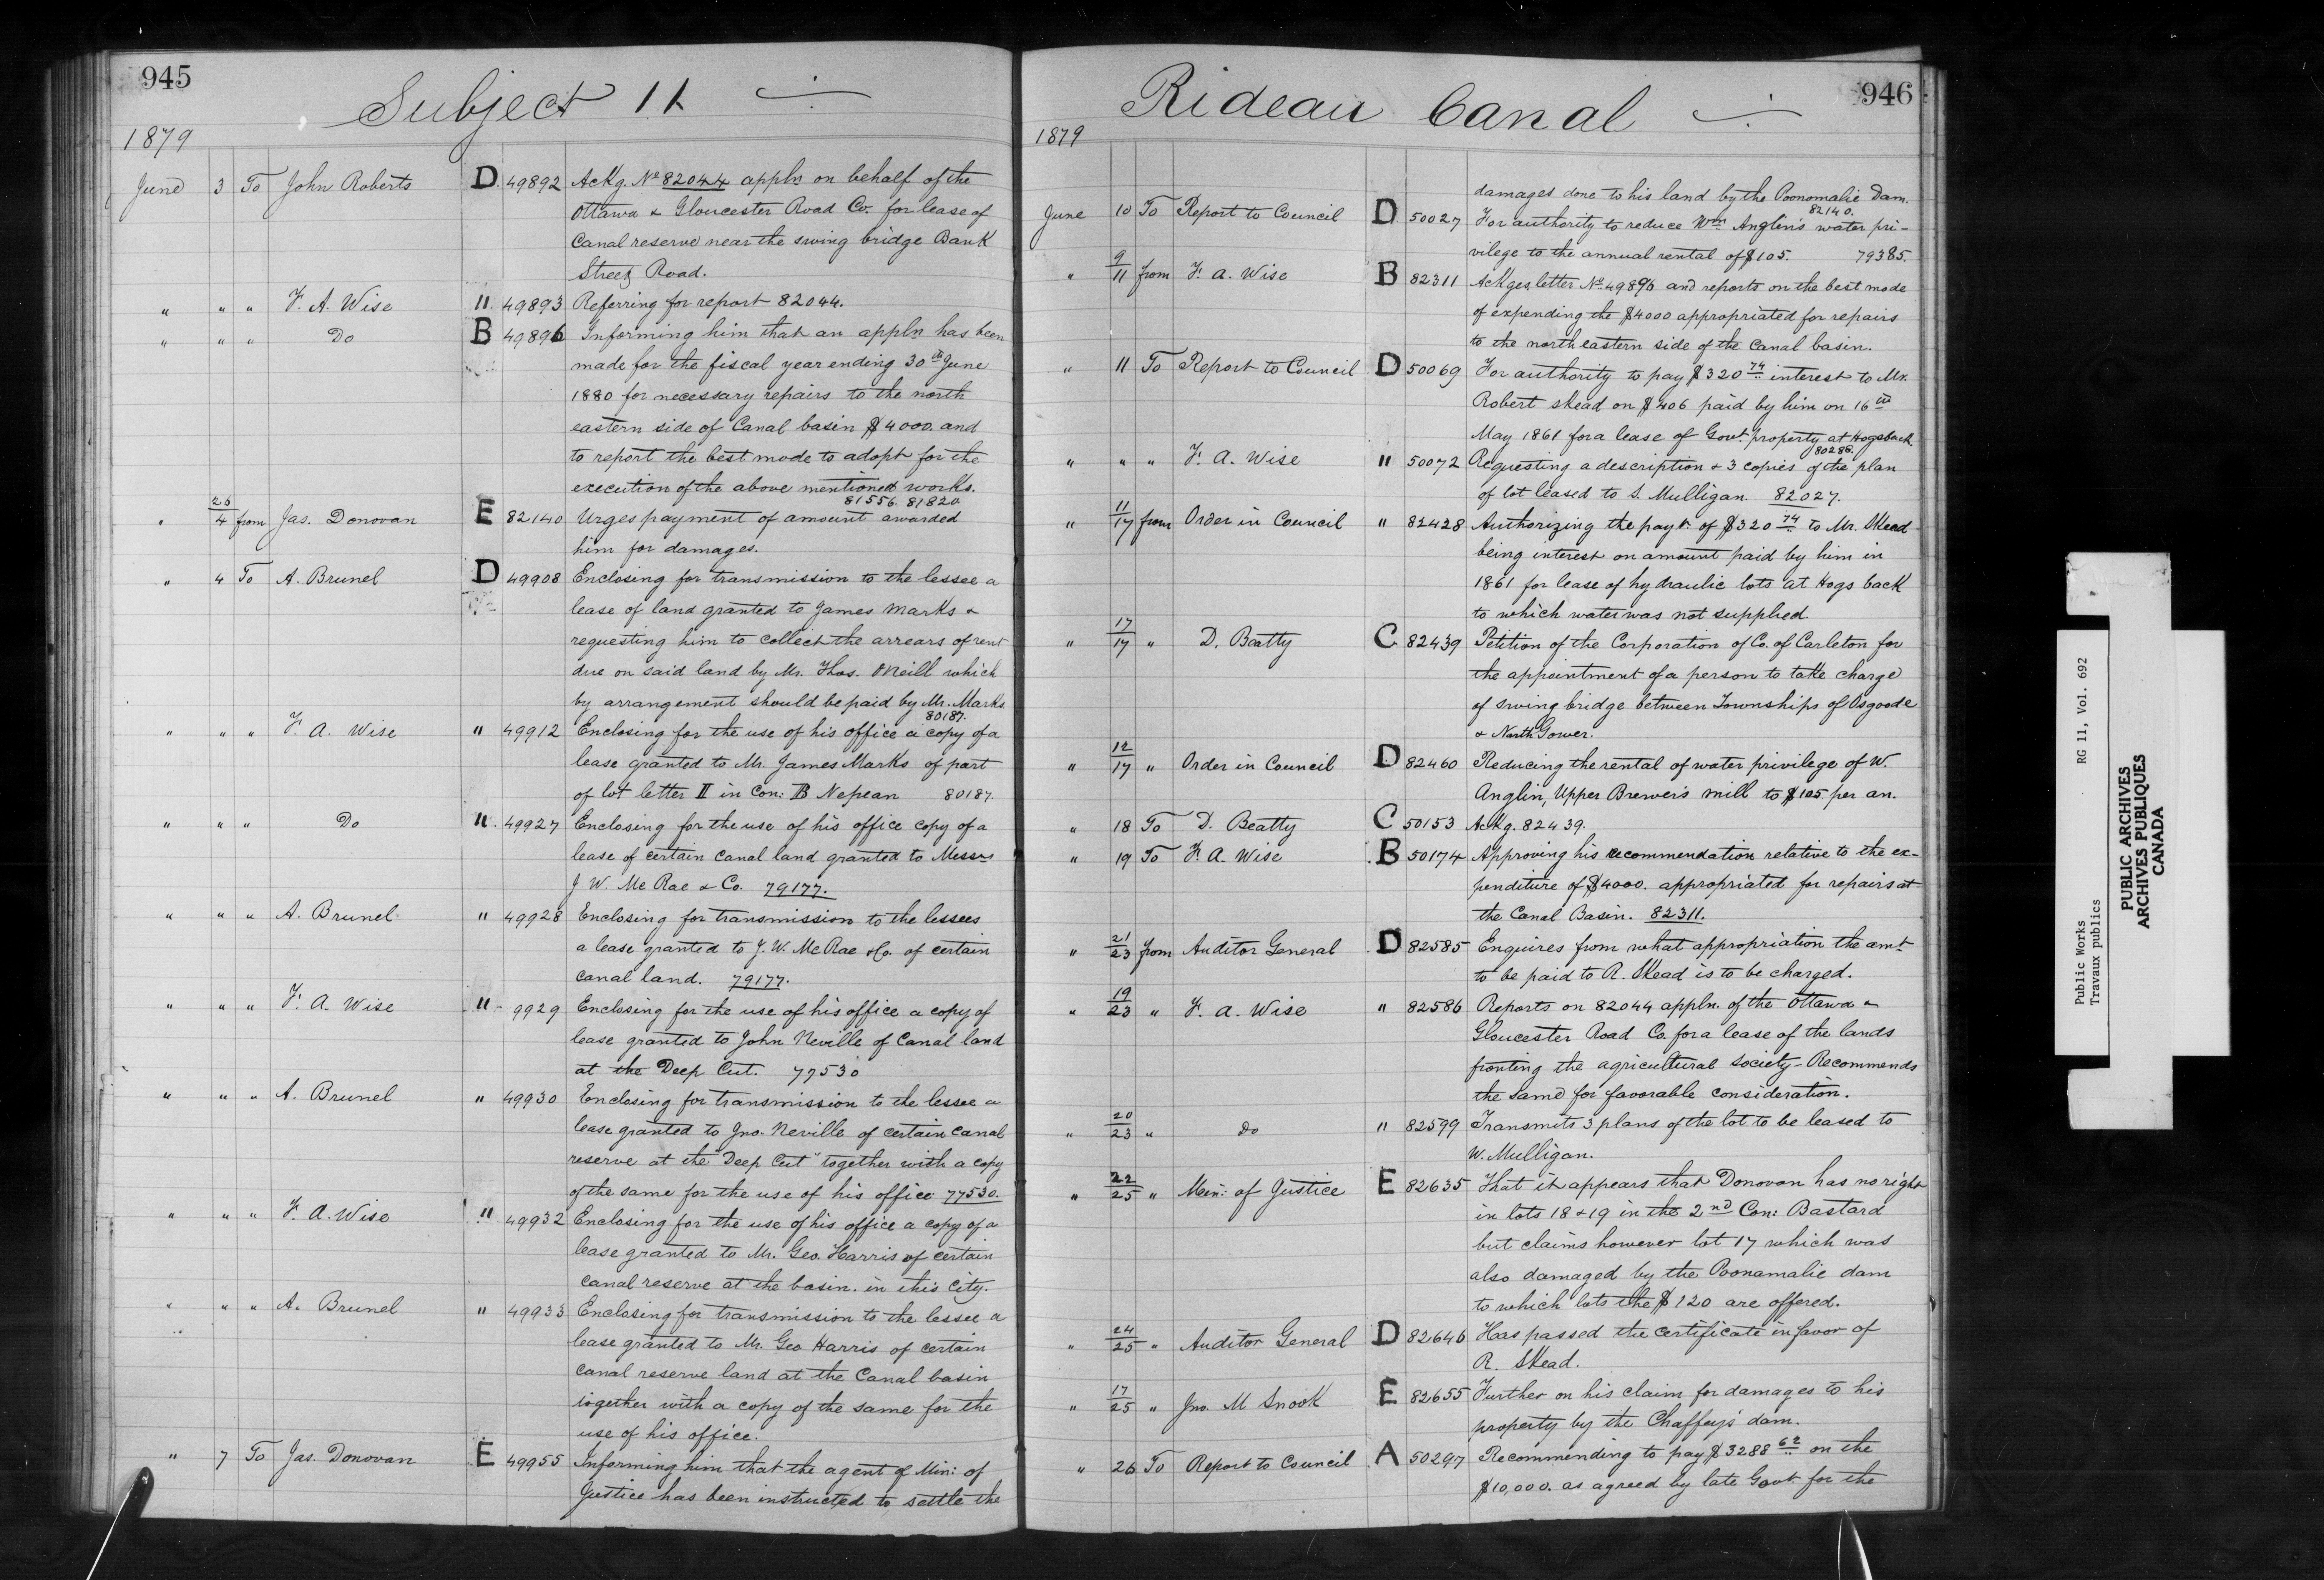 945
Subject 11
1879
June 3 To John Roberts D 49892 Ackg. No 82044 appln on behalf of the
Ottawa & Gloucester Road Co. for lease of
Canal reserve near the swing bridge Bank
Street Road.
" " " F. A. Wise " 49893 Referring for report 82044.
" " " Do B 49896 Informing him that an appln has been
made for the fiscal year ending 30th June
1880 for necessary repairs to the north
eastern side of Canal basin $4000. and
to report the best mode to adopt for the
execution of the above mentioned works.
81556. 81820.
" 26/4 from Jas. Donovan E 82140 Urges payment of amount awarded
him for damages.
" 4 To A. Brunel D 49908 Enclosing for transmission to the lessee a
lease of land granted to James Marks &
requesting him to collect the arrears of rent
due on said land by Mr. Thos. ONeill which
by arrangement should be paid by Mr. Marks
80187.
" " " F. A. Wise " 49912 Enclosing for the use of his office a copy of a
lease granted to Mr. James Marks of part
of lot letter II in Con: B Nepean 80187.
" " " Do " 49927 Enclosing for the use of his office copy of a
lease of certain Canal land granted to Messrs
J W. Mc Rae & Co. 79177.
" " " A. Brunel " 49928 Enclosing for transmission to the lessees
a lease granted to J. W. McRae & Co. of certain
Canal land. 79177.
" " " F. A. Wise " 9929 Enclosing for the use of his office a copy of
lease granted to John Neville of Canal land
at the Deep Cut. 77530
" " " A. Brunel " 49930 Enclosing for transmission to the lessee a
lease granted to Jno. Neville of certain Canal
reserve at the "Deep Cut" together with a copy
of the same for the use of his office 77530.
" " " F. A. Wise " 49932 Enclosing for the use of his office a copy of a
lease granted to Mr. Geo. Harris of certain
Canal reserve at the basin. in this City.
" " " A. Brunel " 49933 Enclosing for transmission to the lessee a
lease granted to Mr. Geo Harris of certain
Canal reserve land at the Canal basin
together with a copy of the same for the
use of his office.
" 7 To Jas. Donovan E 49955 Informing him that the agent of Min: of
Justice has been instructed to settle the
Rideau Canal
946
1879
damages done to his land by the Poonomalie Dam.
82140.
June 10 To Report to Council D 50027 For authority to reduce Wm Anglin's water pri-
vilege to the annual rental of $105. 79385.
" 9/11 from F. A. Wise B 82311 Ackges letter No 49896 and reports on the best mode
of expending the $4000 appropriated for repairs
to the north eastern side of the Canal basin.
" 11 To Report to Council D 50069 For authority to pay $320 74 interest to Mr.
Robert Skead on $406 paid by him on 16th
May 1861 for a lease of Govt property at Hogsback
80286.
" " " F. A. Wise " 50072 Requesting a description & 3 copies of the plan
of lot leased to S. Mulligan. 82027.
" 11/17 from Order in Council " 82428 Authorizing the payt of $320 74 to Mr. Skead
being interest on amount paid by him in
1861 for lease of hydraulic lots at Hogs back
to which water was not supplied.
" 17/17 " D. Beatty C 82439 Petition of the Corporation of Co. of Carleton for
the appointment of a person to take charge
of swing bridge between Townships of Osgoode
& North Gower.
" 12/17 " Order in Council D 82460 Reducing the rental of water privilege of W.
Anglin, Upper Brewer's mill to $105 per an.
" 18 To D. Beatty C 50153 Ackg. 82439.
" 19 To F. A. Wise B 50174 Approving his recommendation relative to the ex-
penditure of $4000. appropriated for repairs at
the Canal Basin. 82311.
" 21/23 from Auditor General D 82585 Enquires from what appropriation the amt
to be paid to R. Skead is to be charged.
" 19/23 " F. A. Wise " 82586 Reports on 82044 appln. of the Ottawa &
Gloucester Road Co. for a lease of the lands
fronting the agricultural society - Recommends
the same for favorable consideration.
" 20/23 " do " 82599 Transmits 3 plans of the lot to be leased to
W. Mulligan.
" 22/25 " Min: of Justice E 82635 That it appears that Donovan has no right
in lots 18 & 19 in the 2nd Con: Bastard
but claims however lot 17 which was
also damaged by the Poonamalie dam
to which lots the $120 are offered.
" 24/25 " Auditor General D 82646 Has passed the certificate in favor of
R. Skead.
" 17/25 " Jno. M Snook E 82655 Further on his claim for damages to his
property by the Chaffeys' dam.
" 26 To Report to Council A 50297 Recommending to pay $3288 62 on the
$10,000. as agreed by late Govt for the
Public Works RG 11, Vol. 692
Travaux publics
PUBLIC ARCHIVES
ARCHIVES PUBLIQUES
CANADA